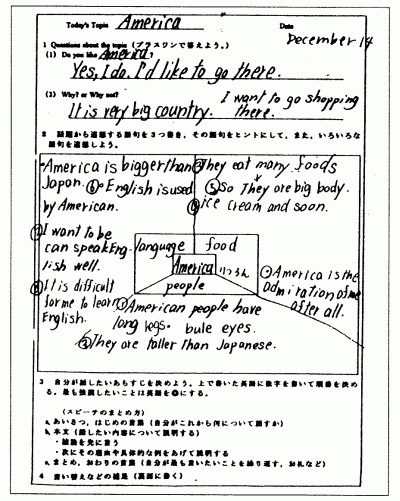 Today's Topic America Date December 14
1 Questions about the topic (プラスワンで答えよう。)
(1) Do you like America?
Yes, I do. I'd like to go there.
(2) Why? or Why not?
It is very big country. I want to go shopping there.
2 話題から連想する語句を3つ書き、その語句をヒントにして、また、いろいろな
語句を連想しよう。
America is bigger than
Japan. ⑥ English is used
by American.
They eat many foods
⑤ So They are big body.
ice cream and soon.
I want to be
can speak Eng-
lish well.
It is difficult
for me to learn
English.
language food
America
people
いつろん
America is the
admiration of me
after all.
① American people have
long legs. bule eyes.
They are taller than Japanese.
3 自分が話したいあらすじを決めよう。上で書いた英語に数字を書いて順番を決め
る。最も強調したいことは英語を◎にする。
(スピーチのまとめ方)
a. あいさつ、はじめの言葉 (自分がこれから何について話すか)
b. 本文 (話したい内容について説明する)
・結論を先に言う
・次にその理由や具体的な例をあげて説明する
c. まとめ、おわりの言葉 (自分が最も言いたいことを繰り返す、お礼など)
4 言い替えなどの補足 (裏面に書く)